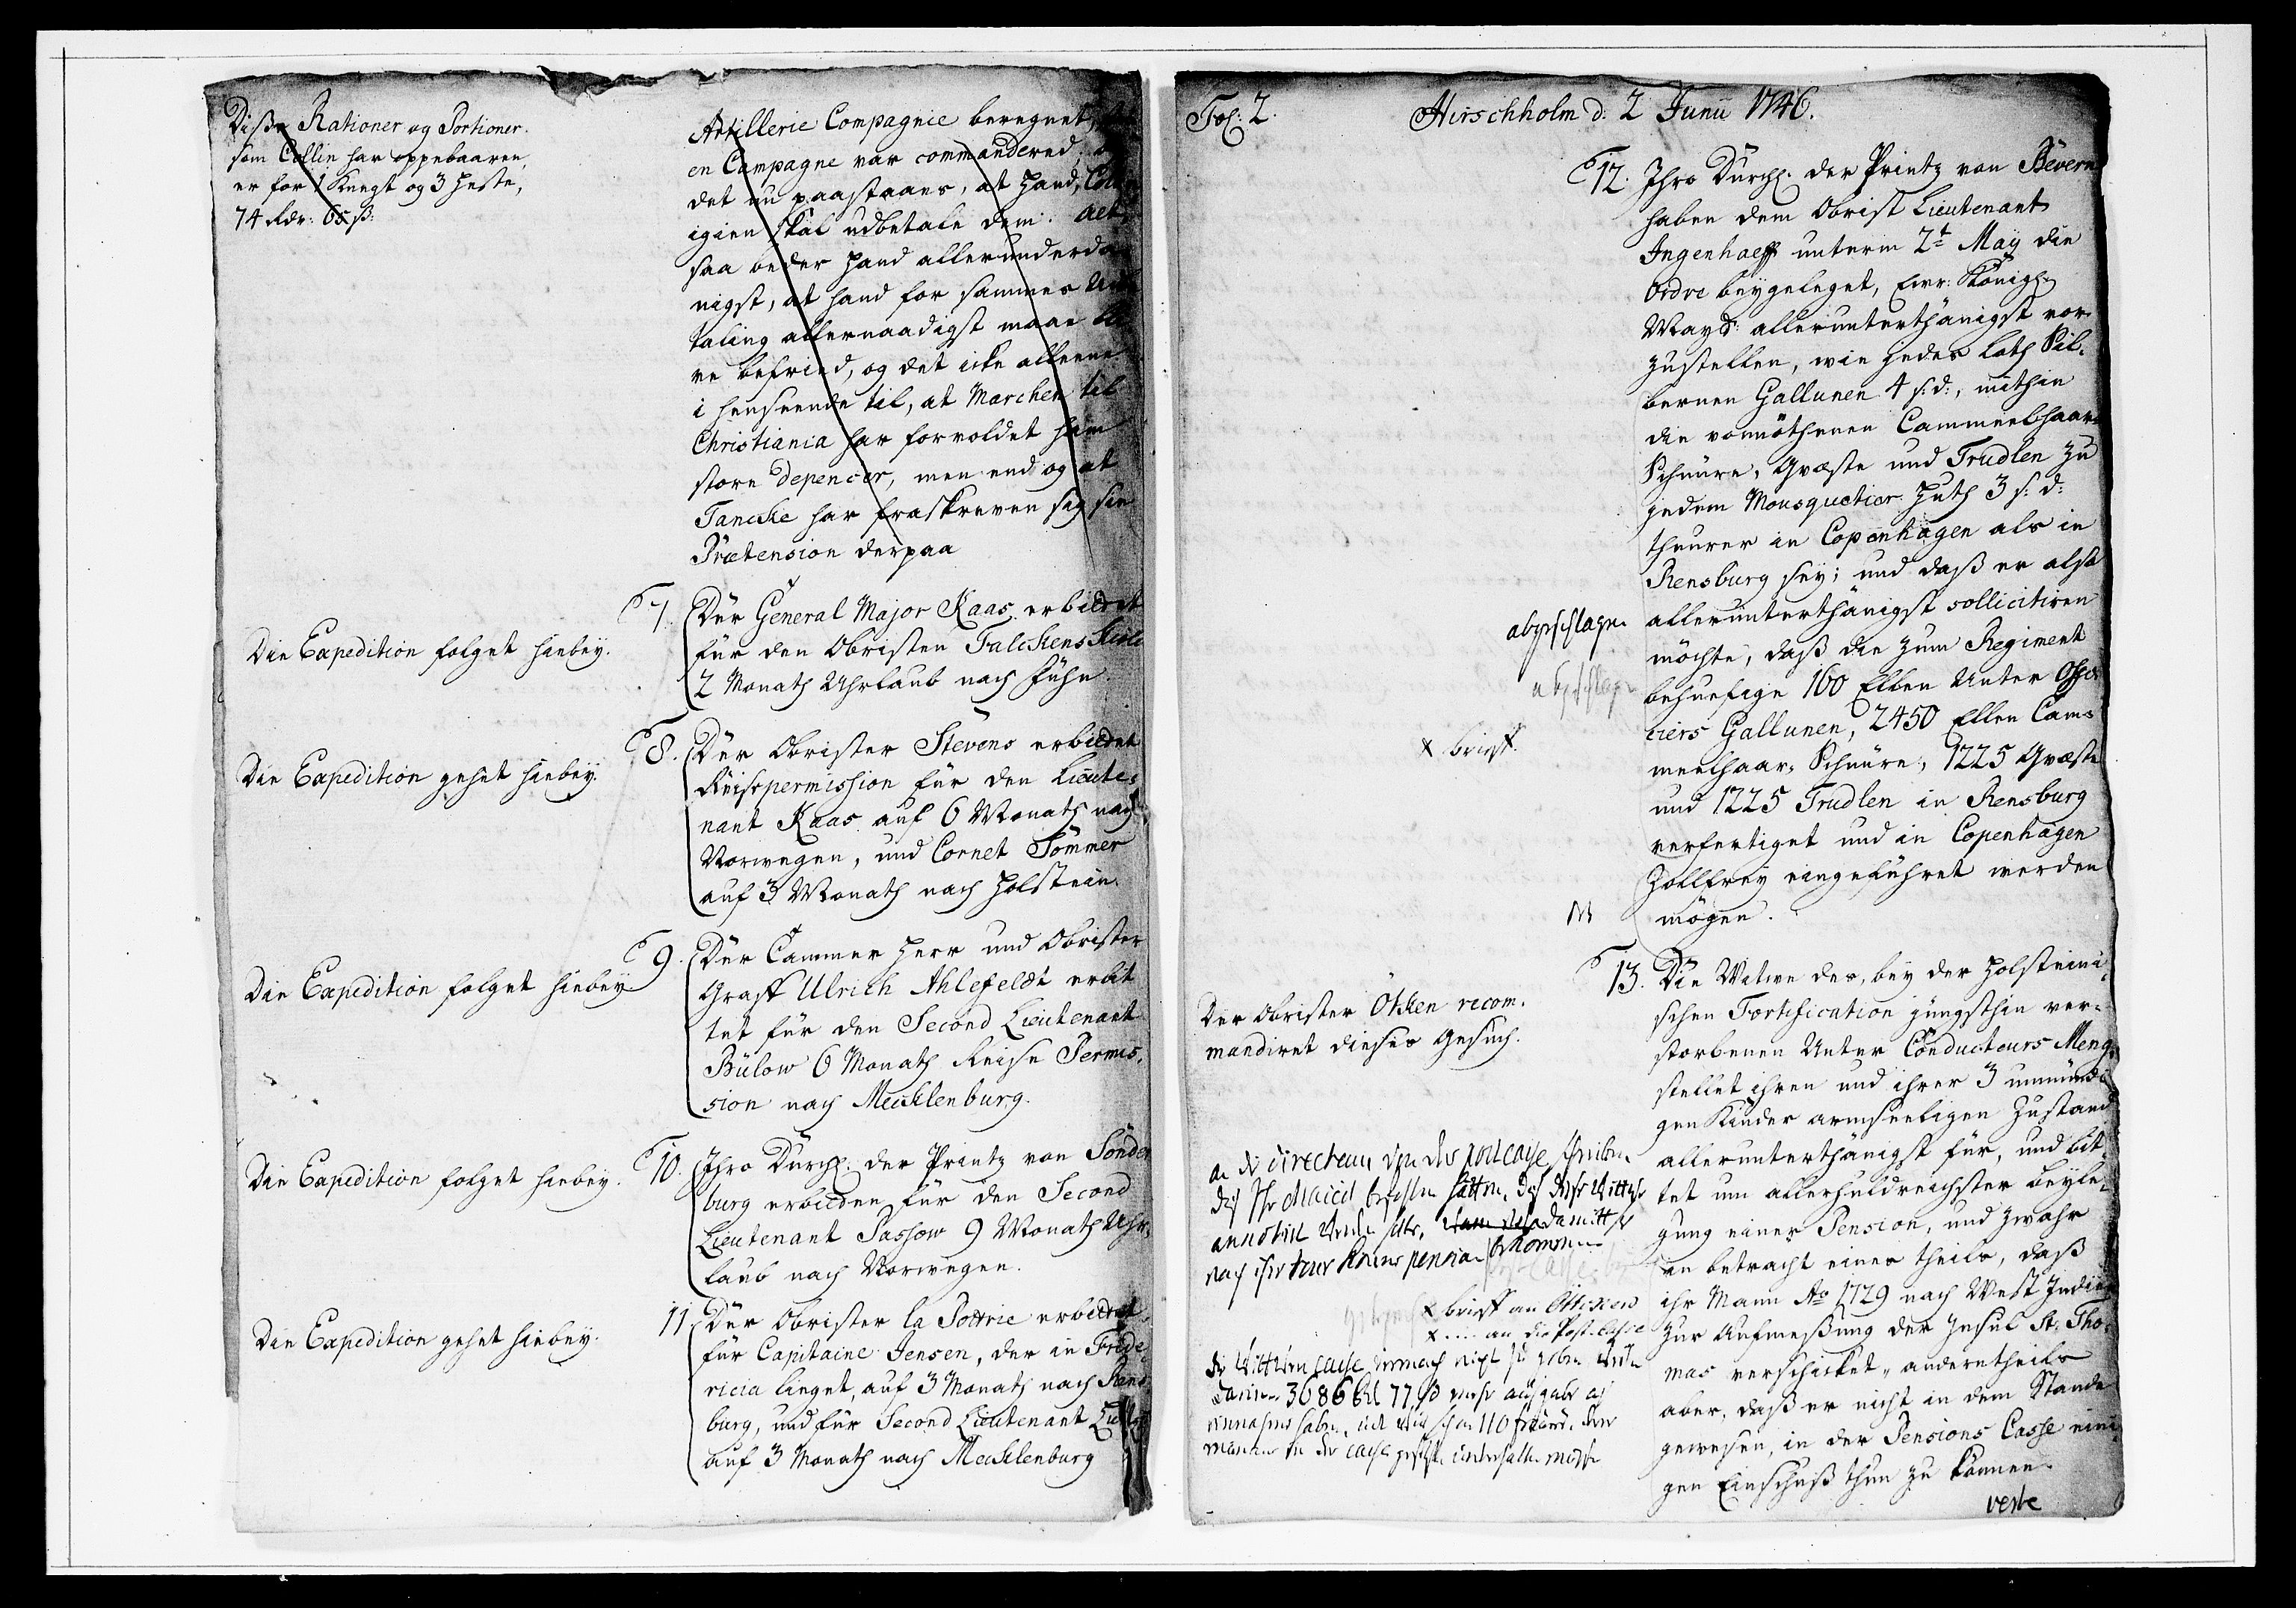 Disse Rationer og Portioner.
som Collin har oppebaaren,
er for 1 Knegt og 3 Heste,
74 Rdr: 65 ß:
Artillerie Compagnie beregnet,
en Campagne var commandered;
det nu paastaaes, at hand,
igien skal udbetale dem. Alt
saa beder hand allerunderda
nigst, at hand for sammes Ud
taling allernaadigst maae bli
ve befried, og det icke alleene
i henseende til, at Marchen til
Christiania har forvoldet ham
store depencer, men end og at
Tancke har fraskreven sig sin
Prætension derpaa
7. Der General Major Kaas erbiedet
für den Obristen Falckenskiold
2 Monath Uhrlaub nach Fühn.
Die Expedition folget hiebey.
8. Der Obrister Stevens erbiedet
Reisepermission für den Lieute-
nant Kaas auf 6 Monath nach
Norwegen, und Cornet Sommer
auf 3 Monath nach Holstein.
Die Expedition gehet hiebey.
9. Der Cammer Herr und Obrister
Graff Ulrich Ahlefeldt erbit
tet für den Second Lieutenant
Bülow 6 Monath Reise Permis-
sion nach Mecklenburg.
Die Expedition folget hiebey.
10. Ihro Durchl. der Printz von Sonder
burg erbieden für den Second
Lieutenant Sassow 9 Monath Uhr-
laub nach Norwegen.
Die Expedition folget hiebey.
11. Der Obrister la Pottrie erbiedet
für Capitaine Jensen, der in Fride-
ricia lieget, auf 3 Monath nach Rens
burg, und für Second Lieutenant
auf 3 Monath nach Mecklenburg
Die Expedition gehet hiebey.
Fol: 2.
Hirschholm d. 2 Junii 1746.
12. Ihro Durchl. der Printz von Bevern
haben dem Obrist Lieutenant
Ingenhaeff unterm 2t May die
Ordre beygeleget, Ewr: Königl.
Mayt: allerunterthänigst vor-
zustellen, wie jedes Loth Sil-
bernen Gallunen 4 s: d:, mithin
die vonnöthenen Cammeelhaar-
Schnüre, Qvæste und Trudlen zu
jedem Mousquetier Huth 3 s: d:
theurer in Copenhagen als in
Rensburg sey; und daß er also
allerunterthänigst sollicitiren
möchte, daß die zum Regiment
behuefige 160 Ellen Unter Offi-
ciers Gallunen, 2450 Ellen Cam-
meelhaar-Schnüre, 1225 Qvæste
und 1225 Trudlen in Rensburg
verfertiget und in Copenhagen
Zollfrey eingeführet werden
mögen.
abgeschlagen
abgeschlagen
x brieff.
13. Die Witwe des, bey der Holsteini-
schen Fortification jüngsthin ver-
storbenen Unter Conducteurs Meng,
stellet ihren und ihrer 3 unmündi
gen Kinder armseeligen Zustand
allerunterthänigst für, und bit-
tet um allerhuldreichster beyle-
gung einer Pension, und zwahr
in betracht eines theils, daß
ihr Mann Ao 1729 nach West Indien
zur Aufmeßung der Insul St. Tho-
mas verschicket, anderntheils
aber, daß er nicht in dem Stande
gewesen, in der Pensions Casse eini-
gen Einschuß thun zu können.
verte
Der Obrister Ötken recom-
mandiret dieses Gesuch.
an die directeurs von der postcasse schreiben
daß Ihr Maiest befohlen hätten, daß diese Wittwe
annotirt werden solte, damit sie
nach ihre tour keine pension bekommen
x brieff an Öttken
x .... an die Post-Casse
die Wittwen casse vermach nicht zu geben
3686 Rd 77 ß mehr ausgabe als
einnahme haben, und